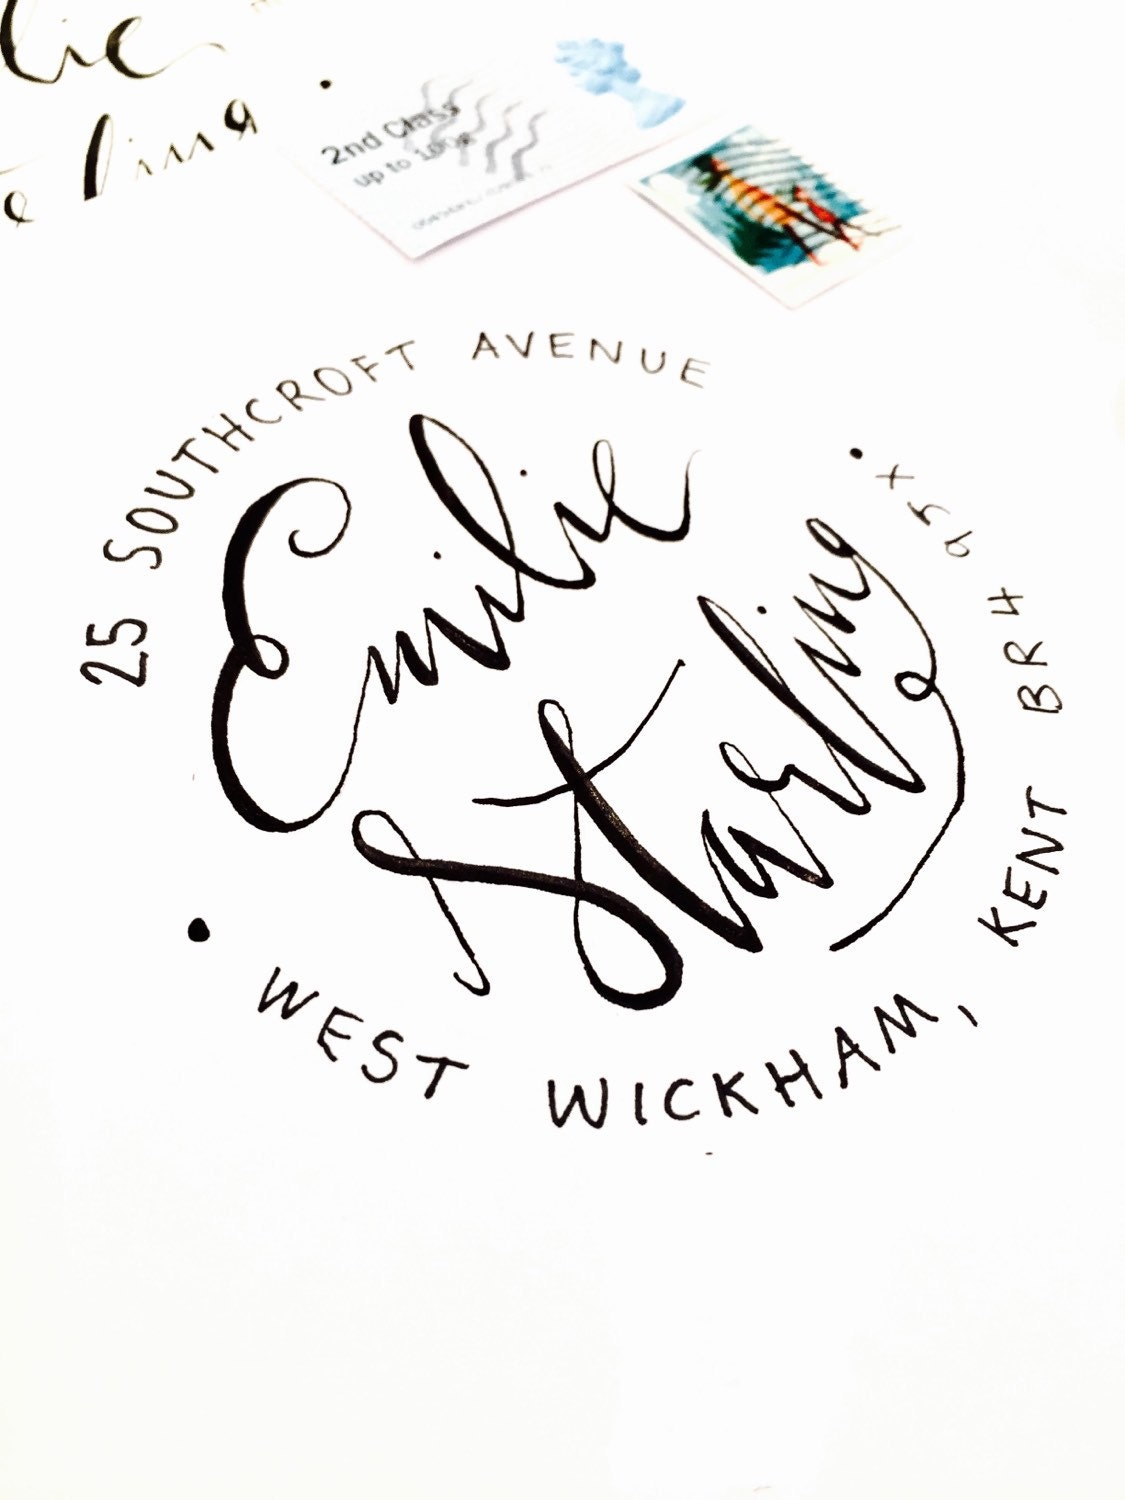 lie
lina
2nd Class
up to 100g
25 SOUTHCROFT AVENUE
Emilie
Starling
WEST WICKHAM,
KENT BR4